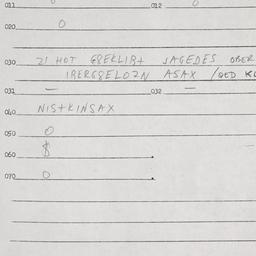 011 0 012 0
020 0
030 21 HOT GBEKLIBT JAGEDES OBER
IBERGBELOZN ASAX / GED
031 — 032 —
040 NISTKINSAX
050 0
060 $
070 0